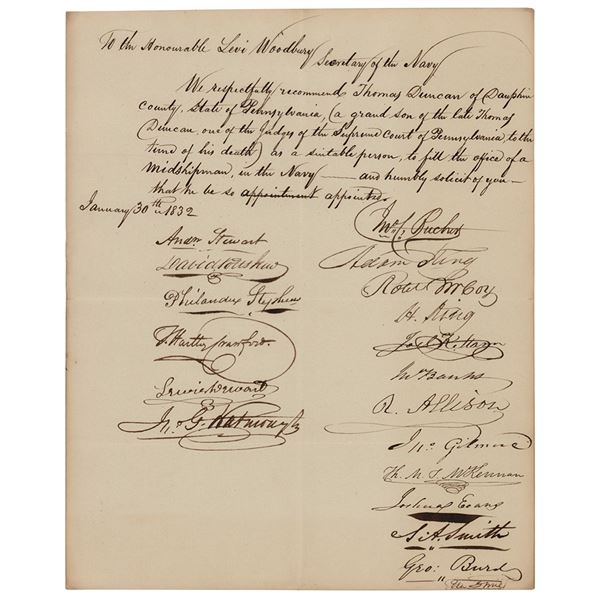 To the Honourable Levi Woodbury
Secretary of the Navy
We respectfully recommend Thomas Duncan of Dauphin
County, State of Pennsylvania, (a grand son of the late Thomas
Duncan, one of the Judges of the Supreme Court of Pennsylvania, to the
time of his death) as a suitable person, to fill the office of a
Midshipman, in the Navy — and humbly solicit of you —
that he be so appointment appointed
January 30th 1832
Andw Stewart
David
Philander Stephens
T. Hartley Crawford.
Lewis Dewart
Jn. G. Watmough
Bucher
Adam King
Robt McCoy
H. King
Joel K. Mann
Jno Banks
R. Allison
Jno Gilmore
Th. M. T. McKennan
Joshua Evans
S. A. Smith
Geo: Burd